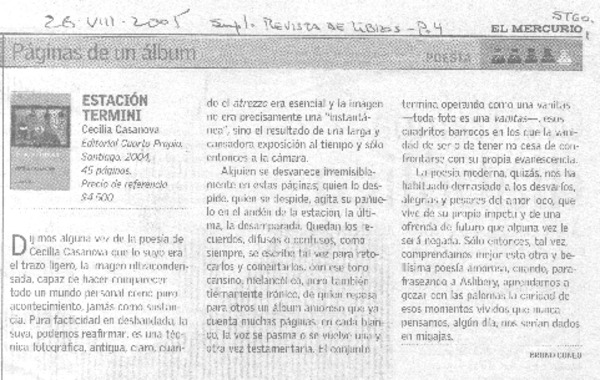 26 VIII. 2005 Supl. REVISTA DE LIBROS - P. 4 STGO.
EL MERCURIO
Páginas de un álbum
POESÍA
ESTACIÓN
TERMINI
Cecilia Casanova
Editorial Cuarto Propio,
Santiago, 2004,
45 páginas.
Precio de referencia
$4.500.
Dijimos alguna vez de la poesía de
Cecilia Casanova que lo suyo era
el trazo ligero, la imagen ultraconden-
sada, capaz de hacer comparecer
todo un mundo personal como puro
acontecimiento, jamás como sustan-
cia. Pura facticidad en desbandada, la
suya, podemos reafirmar, es una téc-
nica fotográfica, antigua, claro, cuan-
do el atrezzo era esencial y la imagen
no era precisamente una "instantá-
nea", sino el resultado de una larga y
cansadora exposición al tiempo y sólo
entonces a la cámara.
Alguien se desvanece irremisible-
mente en estas páginas; quien lo des-
pide, quien se despide, agita su pañue-
lo en el andén de la estación, la últi-
ma, la desamparada. Quedan los re-
cuerdos, difusos o confusos, como
siempre, se escribe tal vez para reto-
carlos y comentarlos, con ese tono
cansino, melancólico, pero también
tiernamente irónico, de quien repasa
para otros un álbum amoroso que ya
cuenta muchas páginas; en cada blan-
co, la voz se pasma o se vuelve una y
otra vez testamentaria. El conjunto
termina operando como una vanitas
—toda foto es una vanitas—, esos
cuadritos barrocos en los que la vani-
dad de ser o de tener no cesa de con-
frontarse con su propia evanescencia.
La poesía moderna, quizás, nos ha
habituado demasiado a los desvaríos,
alegrías y pesares del amor loco, que
vive de su propio ímpetu y de una
ofrenda de futuro que alguna vez le
será negada. Sólo entonces, tal vez,
comprendamos mejor esta otra y be-
llísima poesía amorosa, cuando, para-
fraseando a Ashbery, aprendamos a
gozar con las palomas la caridad de
esos momentos vividos que nunca
pensamos, algún día, nos serían dados
en migajas.
BRUNO CUNEO